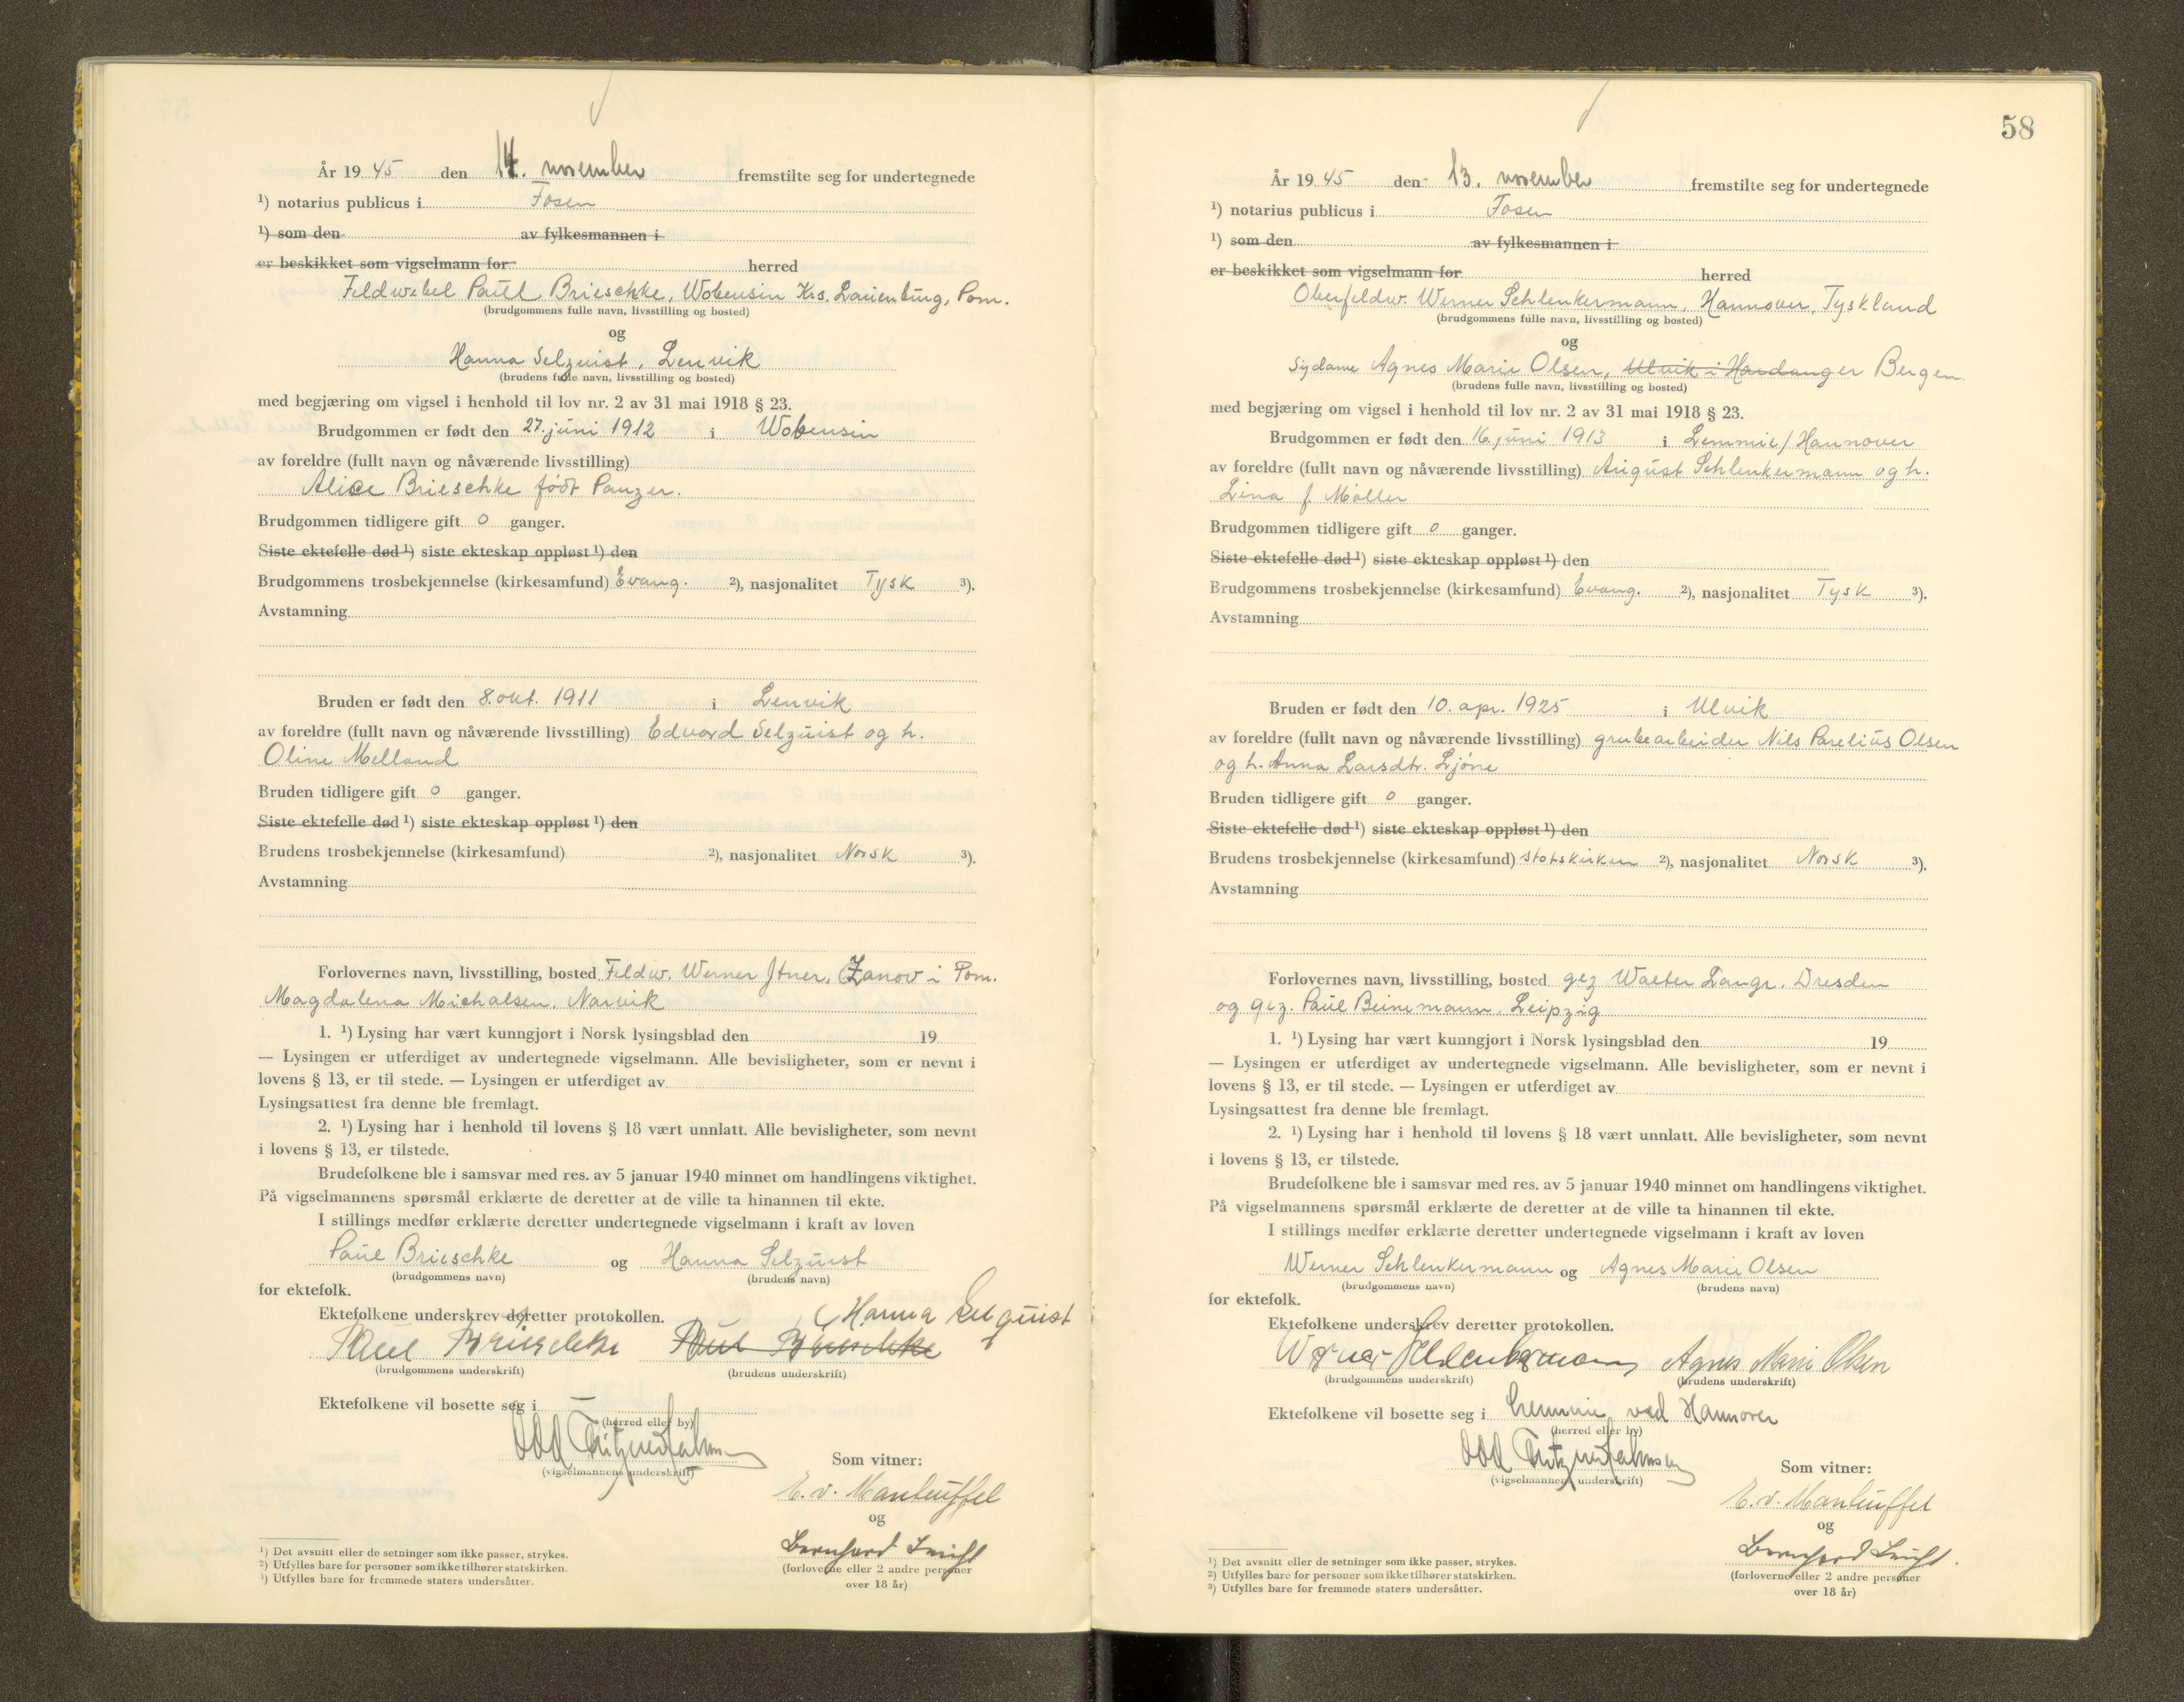 År 19 45 den 14. november fremstilte seg for undertegnede
¹) notarius publicus i Fosen
¹) som den av fylkesmannen i
er beskikket som vigselmann for herred
Feldwebel Paul Brieschke, Wobensin Krs. Lauenburg, Pom.
(brudgommens fulle navn, livsstilling og bosted)
og
Hanna Selquist, Lenvik
(brudens fulle navn, livsstilling og bosted)
med begjæring om vigsel i henhold til lov nr. 2 av 31 mai 1918 § 23.
Brudgommen er født den 27. juni 1912 i Wobensin
av foreldre (fullt navn og nåværende livsstilling)
Alice Brieschke født Panzer.
Brudgommen tidligere gift 0 ganger.
Siste ektefelle død ¹) siste ekteskap oppløst ¹) den
Brudgommens trosbekjennelse (kirkesamfund) Evang. ²), nasjonalitet Tysk ³).
Avstamning
Bruden er født den 8. okt. 1911 i Lenvik
av foreldre (fullt navn og nåværende livsstilling) Edvard Selquist og h.
Oline Melland
Bruden tidligere gift 0 ganger.
Siste ektefelle død ¹) siste ekteskap oppløst ¹) den
Brudens trosbekjennelse (kirkesamfund) ²), nasjonalitet Norsk ³).
Avstamning
Forlovernes navn, livsstilling, bosted Feldw. Werner Itner, Zanov i Pom.
Magdalena Michalsen, Narvik
1. ¹) Lysing har vært kunngjort i Norsk lysingsblad den 19
— Lysingen er utferdiget av undertegnede vigselmann. Alle bevisligheter, som er nevnt i
lovens § 13, er til stede. — Lysingen er utferdiget av
Lysingsattest fra denne ble fremlagt.
2. ¹) Lysing har i henhold til lovens § 18 vært unnlatt. Alle bevisligheter, som nevnt
i lovens § 13, er tilstede.
Brudefolkene ble i samsvar med res. av 5 januar 1940 minnet om handlingens viktighet.
På vigselmannens spørsmål erklærte de deretter at de ville ta hinannen til ekte.
I stillings medfør erklærte deretter undertegnede vigselmann i kraft av loven
Paul Brieschke og Hanna Selquist
(brudgommens navn) (brudens navn)
for ektefolk.
Ektefolkene underskrev deretter protokollen. Hanna Selquist
Paul Brieschke Paul Brieschke
(brudgommens underskrift) (brudens underskrift)
Ektefolkene vil bosette seg i —
(herred eller by)
Odd
(vigselmannens underskrift)
Som vitner:
E. v. Manteuffel
og
Bernhard
(forloverne eller 2 andre personer
over 18 år)
¹) Det avsnitt eller de setninger som ikke passer, strykes.
²) Utfylles bare for personer som ikke tilhører statskirken.
³) Utfylles bare for fremmede staters undersåtter.
58
År 19 45 den 13. november fremstilte seg for undertegnede
¹) notarius publicus i Fosen
¹) som den av fylkesmannen i
er beskikket som vigselmann for herred
Oberfeldw. Werner Schlenkermann, Hannover, Tyskland
(brudgommens fulle navn, livsstilling og bosted)
og
Sydame Agnes Marie Olsen, Ulvik i Hardanger Bergen
(brudens fulle navn, livsstilling og bosted)
med begjæring om vigsel i henhold til lov nr. 2 av 31 mai 1918 § 23.
Brudgommen er født den 16. juni 1913 i Lemmie/Hannover
av foreldre (fullt navn og nåværende livsstilling) August Schlenkermann og h.
Lina f. Møller
Brudgommen tidligere gift 0 ganger.
Siste ektefelle død ¹) siste ekteskap oppløst ¹) den
Brudgommens trosbekjennelse (kirkesamfund) Evang. ²), nasjonalitet Tysk ³).
Avstamning
Bruden er født den 10. apr. 1925 i Ulvik
av foreldre (fullt navn og nåværende livsstilling) grubearbeider Nils Parelius Olsen
og h. Anna Larsdtr. Ljone
Bruden tidligere gift 0 ganger.
Siste ektefelle død ¹) siste ekteskap oppløst ¹) den
Brudens trosbekjennelse (kirkesamfund) statskirken ²), nasjonalitet Norsk ³).
Avstamning
Forlovernes navn, livsstilling, bosted gez Walter Lange. Dresden
og gez. Paul Beinemann. Leipzig
1. ¹) Lysing har vært kunngjort i Norsk lysingsblad den 19
— Lysingen er utferdiget av undertegnede vigselmann. Alle bevisligheter, som er nevnt i
lovens § 13, er til stede. — Lysingen er utferdiget av
Lysingsattest fra denne ble fremlagt.
2. ¹) Lysing har i henhold til lovens § 18 vært unnlatt. Alle bevisligheter, som nevnt
i lovens § 13, er tilstede.
Brudefolkene ble i samsvar med res. av 5 januar 1940 minnet om handlingens viktighet.
På vigselmannens spørsmål erklærte de deretter at de ville ta hinannen til ekte.
I stillings medfør erklærte deretter undertegnede vigselmann i kraft av loven
Werner Schlenkermann og Agnes Marie Olsen
(brudgommens navn) (brudens navn)
for ektefolk.
Ektefolkene underskrev deretter protokollen.
Werner Schlenkermann Agnes Marie Olsen
(brudgommens underskrift) (brudens underskrift)
Ektefolkene vil bosette seg i Lemmie ved Hannover
(herred eller by)
Odd
(vigselmannens underskrift)
Som vitner:
E. v. Manteuffel
og
Bernhard
(forloverne eller 2 andre personer
over 18 år)
¹) Det avsnitt eller de setninger som ikke passer, strykes.
²) Utfylles bare for personer som ikke tilhører statskirken.
³) Utfylles bare for fremmede staters undersåtter.